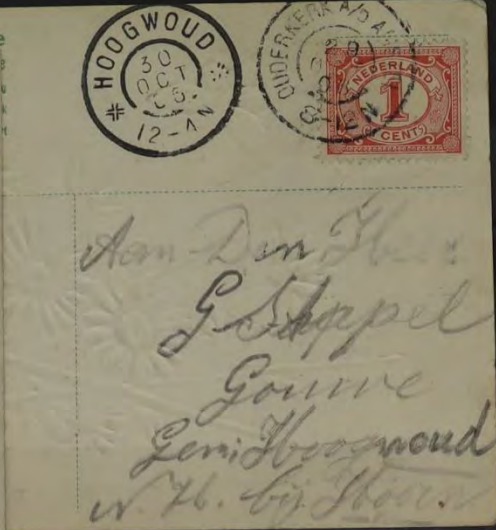 HOOGWOUD
30
OCT
06
12-1N
OUDERKERK A/D A
NEDERLAND
1
CENT
Aan Den Heer
G Stappel
Gouwe
Gem: Hoogwoud
N. H. bij Hoorn